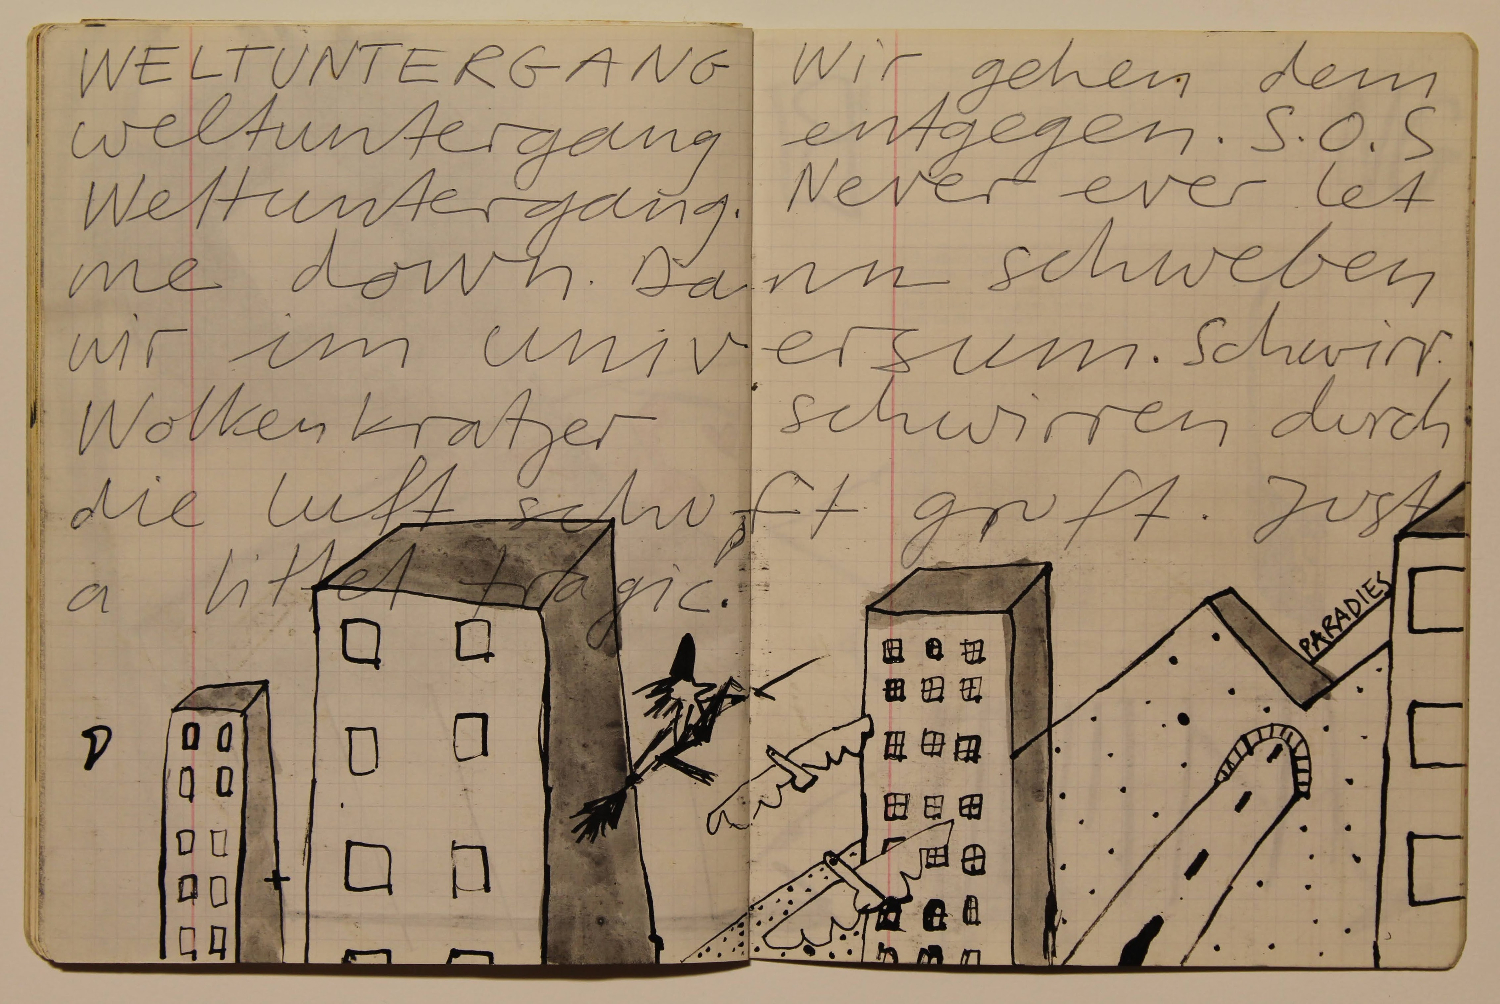 WELTUNTERGANG Wir gehen dem
weltuntergang entgegen. S.O.S
Weltuntergang. Never ever let
me down. Dann schweben
wir im universum. Schwirr.
Wolkenkratzer schwirren durch
die luft schuft gruft. Just
a littel tragic.
PARADIES
D